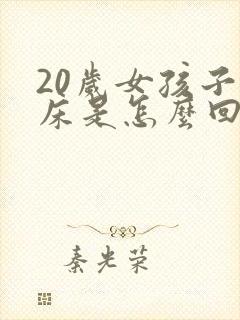 20歲女孩子
床是怎麼回
秦光荣